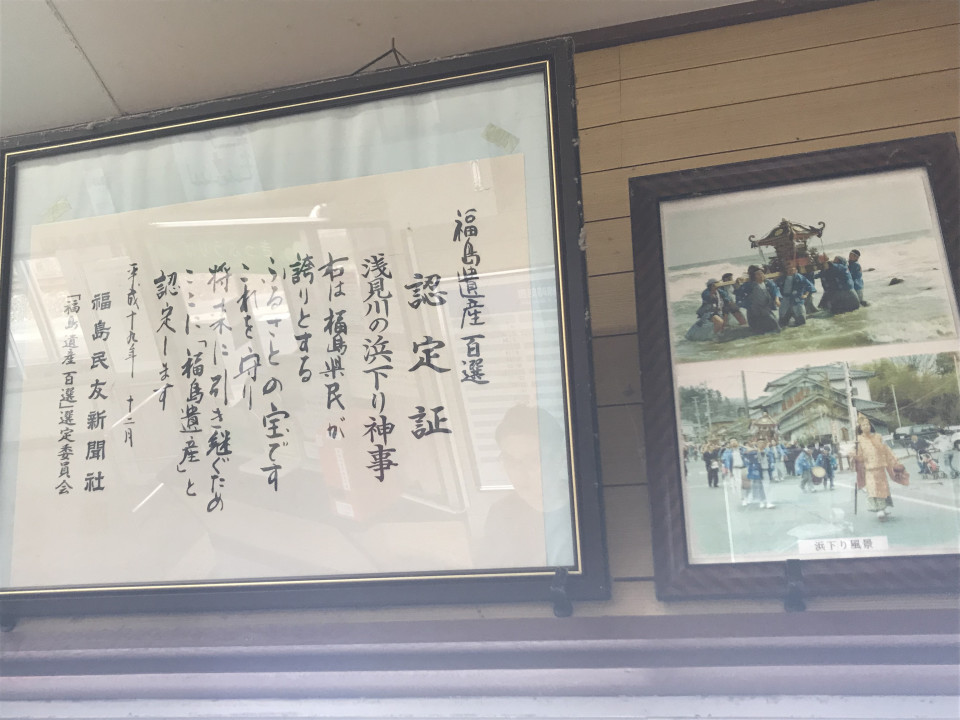 福島遺産百選
認定証
浅見川の浜下り神事
右は福島県民が
誇りとする
ふるさとの宝です
これを守り
将来に引き継ぐため
ここに「福島遺産」と
認定します
平成十九年 十二月
福島民友新聞社
「福島遺産百選」選定委員会
浜下り風景